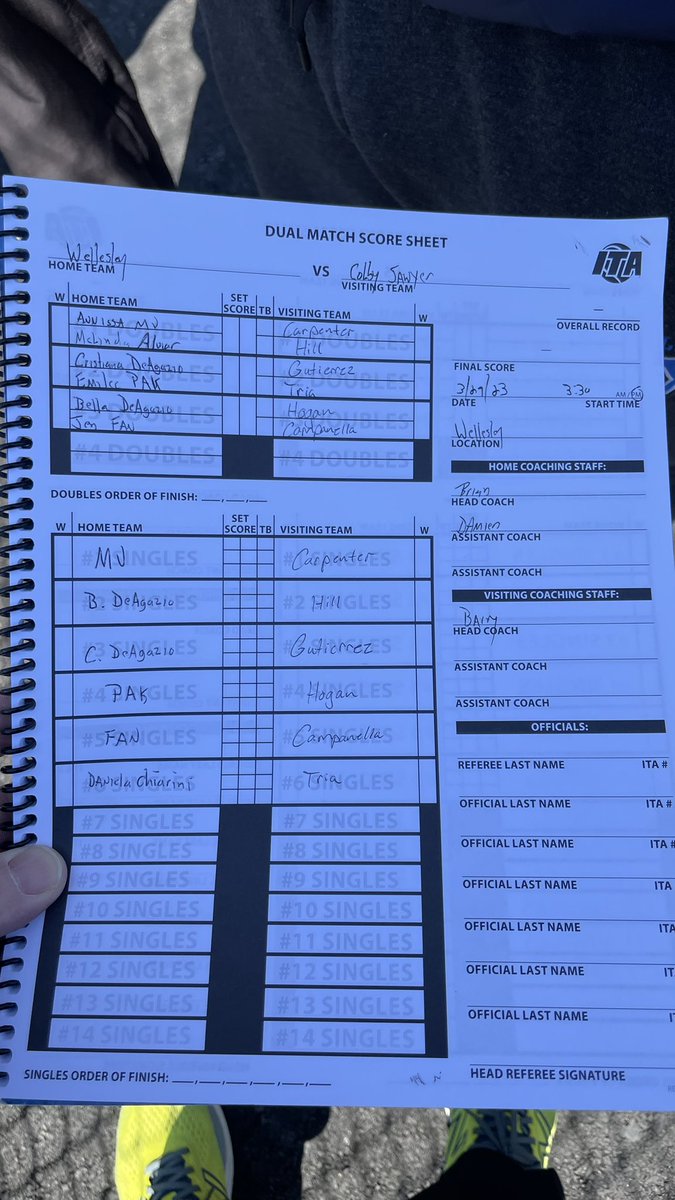 DUAL MATCH SCORE SHEET
ITA
Wellesley VS Colby Sawyer
HOME TEAM VISITING TEAM
OVERALL RECORD
W HOME TEAM SET SCORE TB VISITING TEAM W
Carpenter
Melinda Hill
Cristiana DeAgazio Gutierrez
PAK Tria
Bella DeAgazio Hogan
Jen FAN Campanella
#4 DOUBLES #4 DOUBLES
DOUBLES ORDER OF FINISH: __,__,__
FINAL SCORE
3/29/23 3:30 AM/PM
DATE START TIME
Wellesley
LOCATION
HOME COACHING STAFF:
Brian
HEAD COACH
DAmien
ASSISTANT COACH
ASSISTANT COACH
VISITING COACHING STAFF:
BArry
HEAD COACH
ASSISTANT COACH
ASSISTANT COACH
OFFICIALS:
REFEREE LAST NAME ITA #
OFFICIAL LAST NAME ITA #
OFFICIAL LAST NAME ITA #
OFFICIAL LAST NAME ITA
OFFICIAL LAST NAME ITA
OFFICIAL LAST NAME IT
OFFICIAL LAST NAME
HEAD REFEREE SIGNATURE
W HOME TEAM SET SCORE TB VISITING TEAM W
MJ Carpenter
B. DeAgazio #2 SINGLES Hill
C. DeAgazio Gutierrez
#4 SINGLES PAK Hogan
FAN Campanella
DANiela Chiarini #6 SINGLES Tria
#7 SINGLES #7 SINGLES
#8 SINGLES #8 SINGLES
#9 SINGLES #9 SINGLES
#10 SINGLES #10 SINGLES
#11 SINGLES #11 SINGLES
#12 SINGLES #12 SINGLES
#13 SINGLES #13 SINGLES
#14 SINGLES #14 SINGLES
SINGLES ORDER OF FINISH: __,__,__,__,__,__